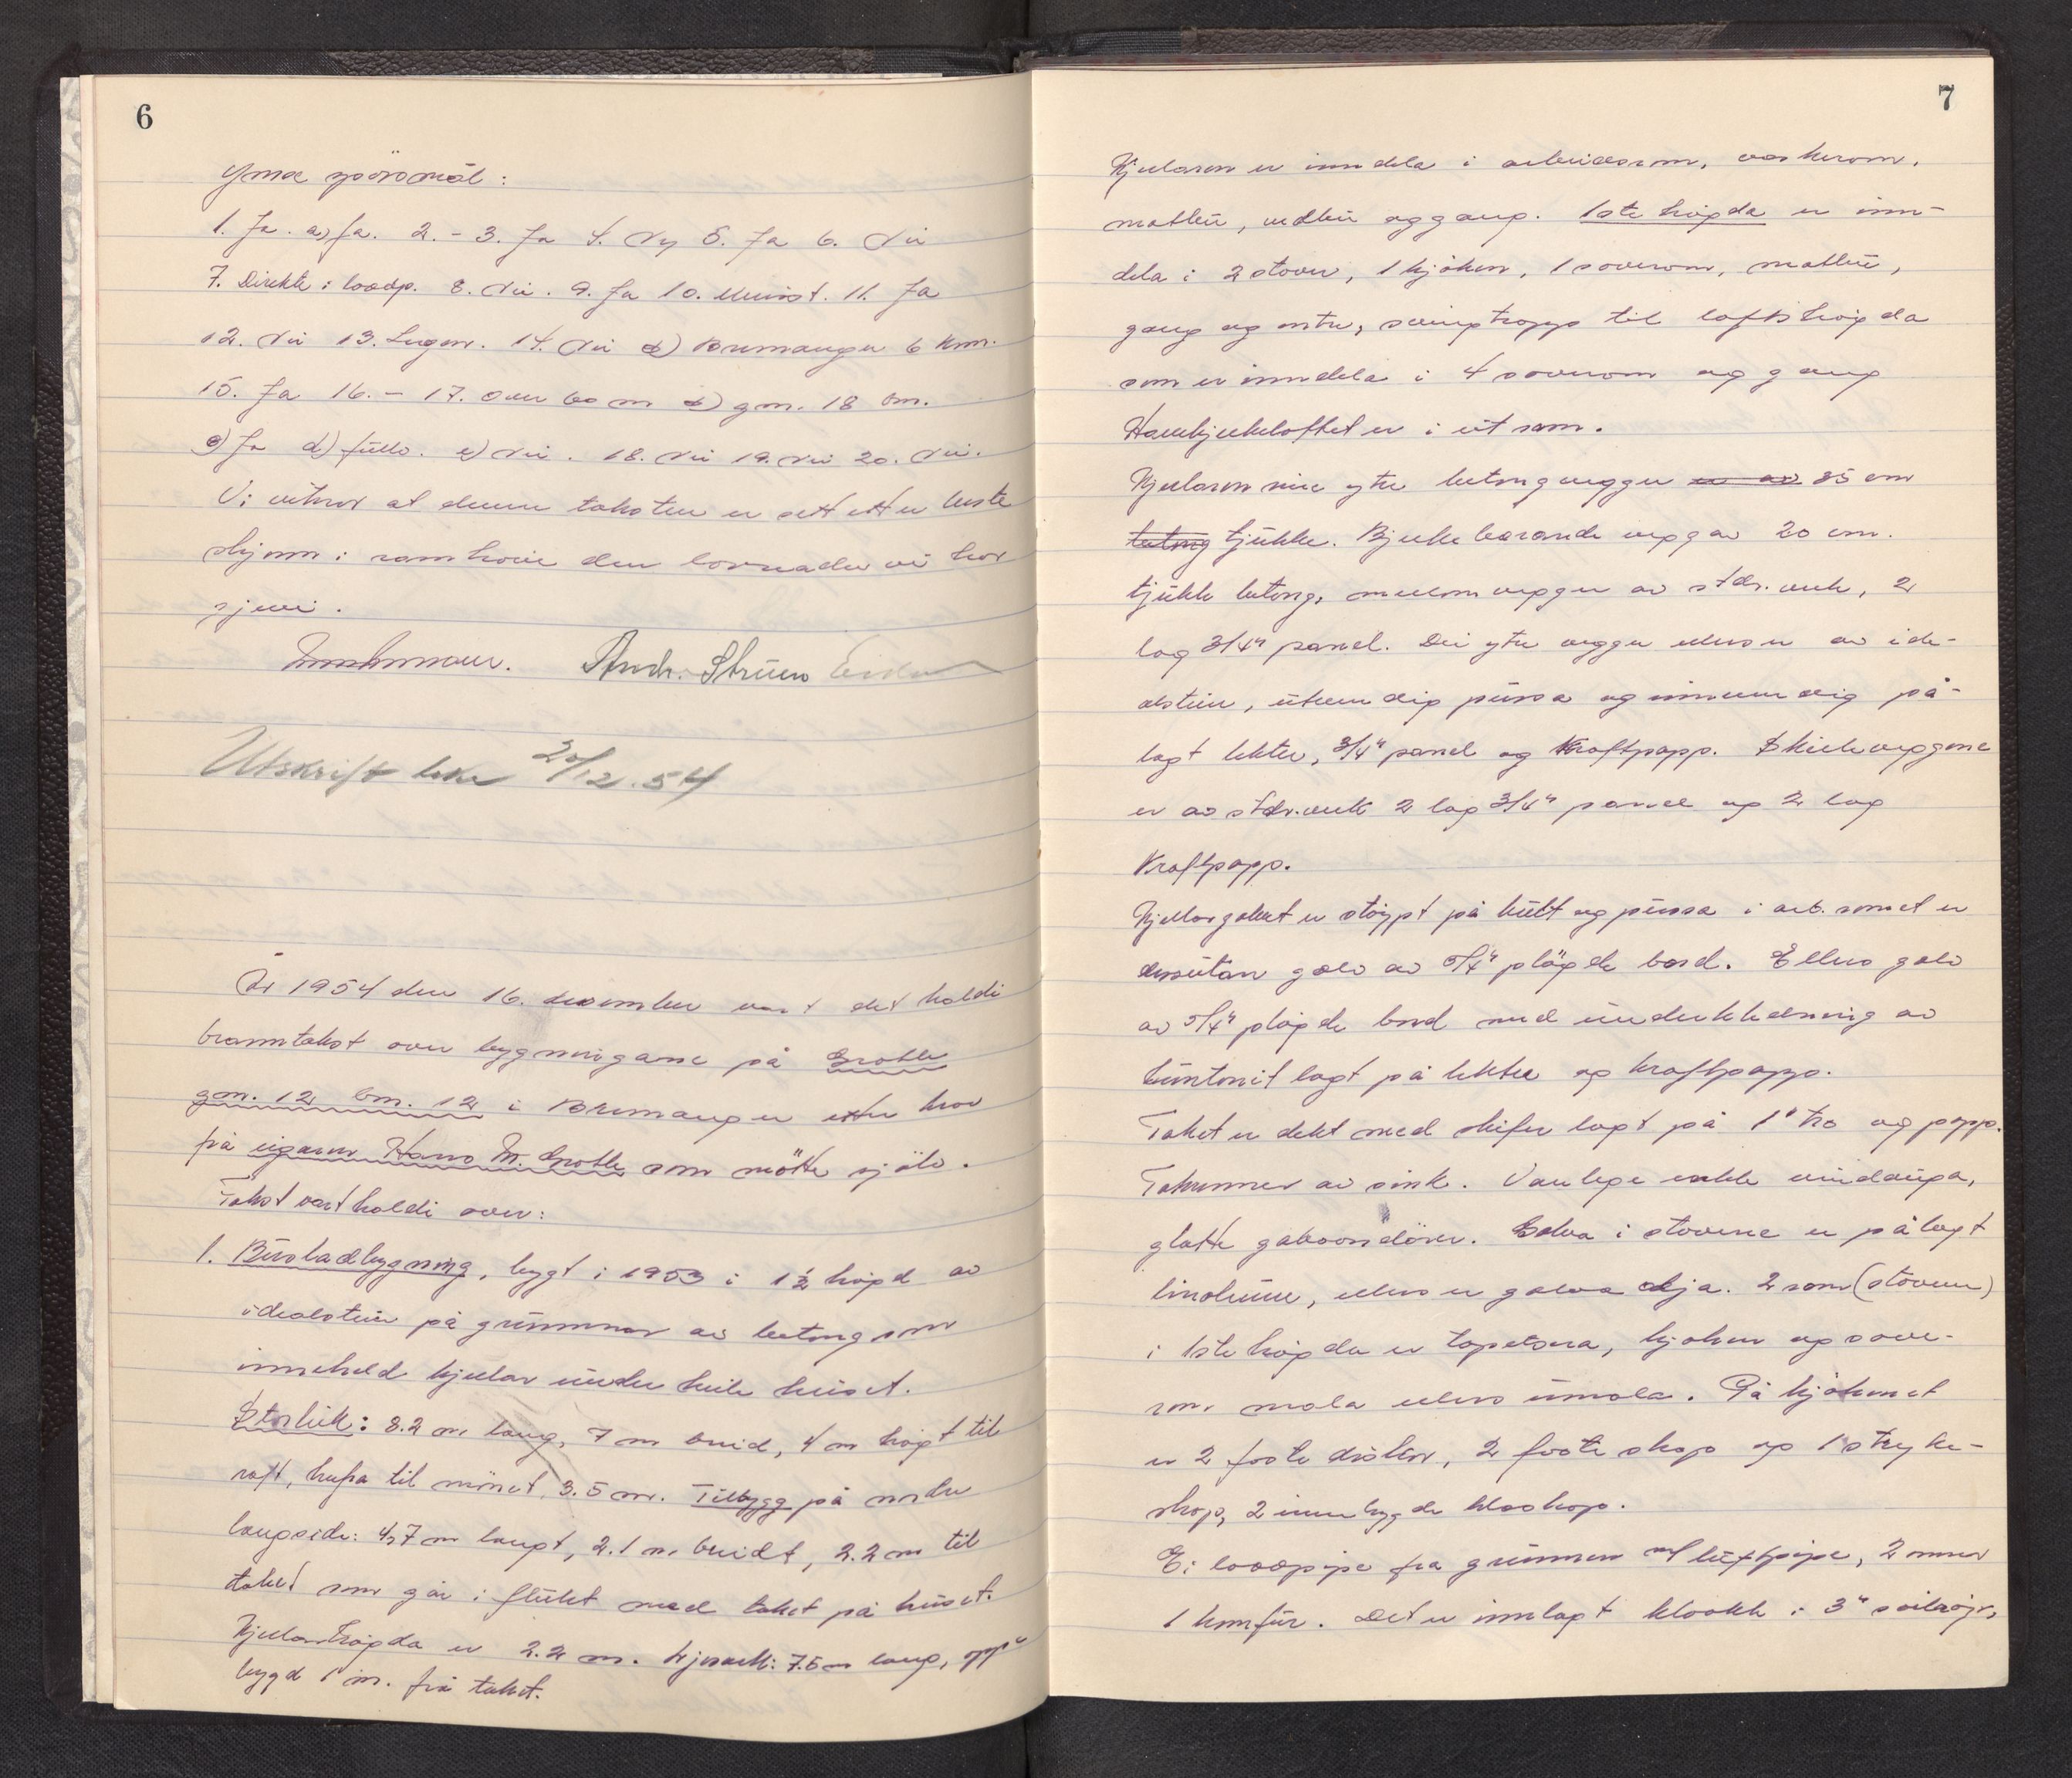 6
Ymse spörsmål:
1. Ja. a) Ja. 2. - 3. Ja 4. Ny 5. Ja 6. Nei
7. Direkte i loddp. 8. Nei. 9. Ja 10. Minst. 11. Ja
12. Nei 13. Ingen. 14. Nei b) Bremanger 6 km.
15. Ja 16. - 17. Over 60 m b) gm. 18 bm.
c) Ja d) fölls. e) Nei. 18. Nei 19. Nei 20. Nei.
Vi vitnar at denne taksten er sett etter beste
skjønn i samhøve den lovnaden vi har
gjevi.
Andr. Strüen
Utskrift 20/12.54
År 1954 den 16. desember vart det haldi
branntakst over bygningane på Grotle
gm. 12 bm. 12 i Bremanger etter krav
frå eigaren Hans M. Grotle som møtte sjølv.
Takst vart haldi over:
1. Büstadbygning, bygt i 1953 i 1½ høgd av
idealstein på grünnmur av betong som
inneheld kjellar ünder heile hüset.
Storleik: 8.2 m lang, 7 m breid, 4 m høgt til
raft, herfra til mønet 3.5 m. Tilbygg på nordre
langside: 4,7 m langt, 2.1 m breidt, 2.2 m til
taket som går i flükt med taket på hüset.
Kjellarhøgda er 2.2 m. Kjøkark: 7.5 m lang, opp-
bygd 1 m. frå taket.
7
Kjellaren er inndela i arbeidsrom, vaskerom,
matbü, vedbü og gang. 1ste høgda er inn-
dela i 2 stover, 1 kjøken, 1 soverom, matbü,
gang og entre, svingtrapp til loftshøgda
som er inndela i 4 soverom og gang
Hanebjelkeloftet er i eit rom.
Kjellaren sine ytre betongvegger er av 25 cm
betong tjükke. Bjelkeberande veggar 20 cm.
tjükk betong, mellomvegger av stdr.verk, 2
lag 3/4" panel. Dei ytre vegger ellers er av ide-
alstein, ütvendig püssa og innvendig på-
lagt lekter, 3/4" panel og Kraftpapp. Skilleveggene
er av stdr.verk 2 lag 3/4" panel og 2 lag
Kraftpapp.
Kjellargolvet er støypt på kült og püssa i arb.romet er
dessütan golv av 5/4" pløgde bord. Ellers golv
av 5/4" pløgde bord med ünderkledning av
hüntonit lagt på lekter og kraftpapp.
Taket er dekt med skifer lagt på 1" tro og papp.
Takrenner av sink. Vanlege enkle vindaüga,
glatte gaboondörer. Golva i stovene er pålagt
linoleüm, ellers er golva olja. 2 rom (stovene)
i 1ste høgda er tapetsera, kjøken og sove-
rom mala ellers ümala. På kjøkenet
er 2 faste diskar, 2 faste skap og 1 stryke-
skap, 2 innebygde kleskap.
Ei loddpipe fra grünnen m/ lüftpipe, 2 omnar
1 komfür. Det er innlagt kloakk i 3" soilrøyr,